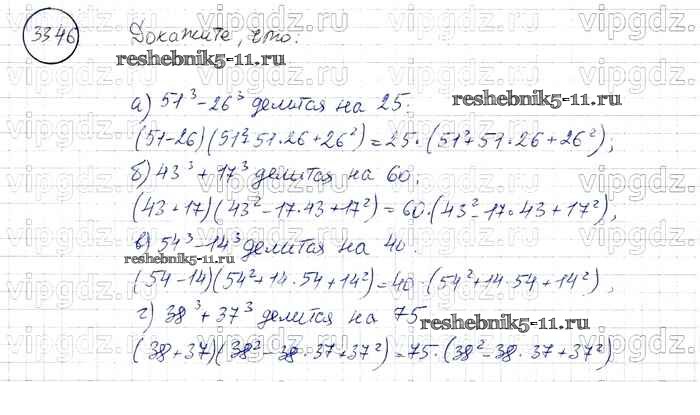 33.46
Докажите, что:
reshebnik5-11.ru
а) 51³ - 26³ делится на 25:
reshebnik5-11.ru
(51-26)(51²+51·26+26²)=25·(51²+51·26+26²);
б) 43³ + 17³ делится на 60;
(43+17)(43²-17·43+17²)=60·(43²-17·43+17²);
в) 54³-14³ делится на 40.
reshebnik5-11.ru
(54-14)(54²+14·54+14²)=40·(54²+14·54+14²);
г) 38³+37³ делится на 75
reshebnik5-11.ru
(38+37)(38²-38·37+37²)=75·(38²-38·37+37²)
vipgdz.